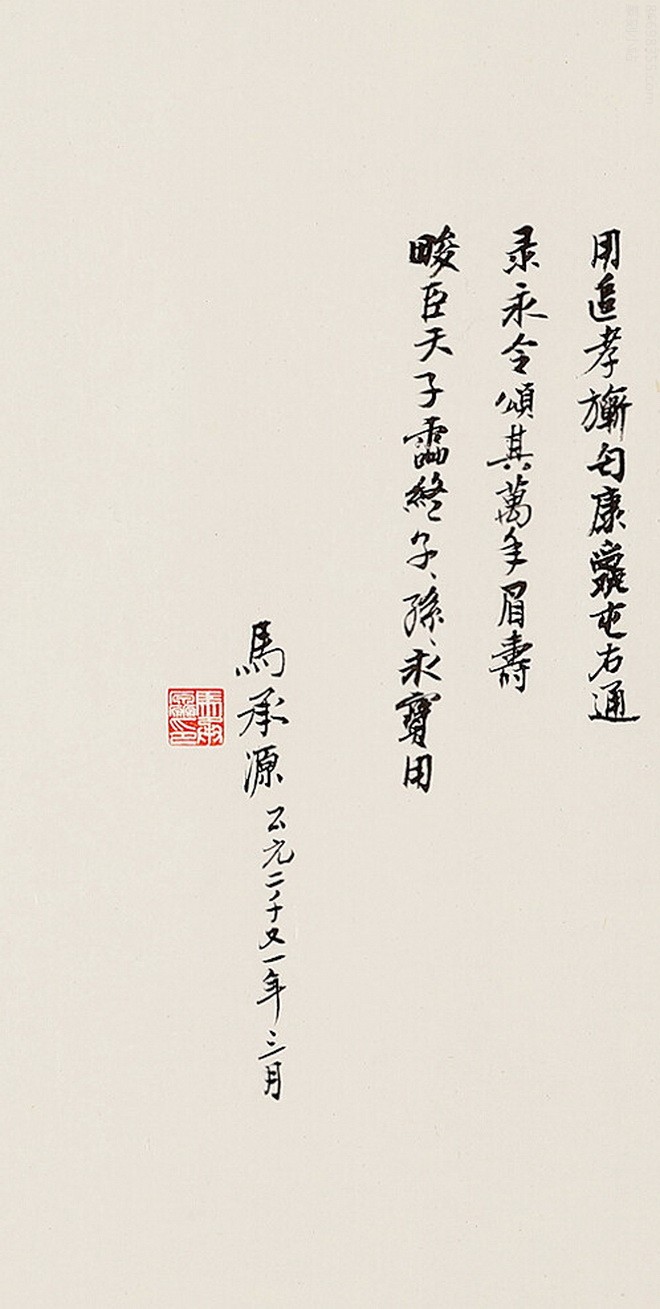 用追孝匄康屯右通
彔永令頌其萬年眉壽
畯臣天子霝終子、孫、永寶用
馬承源 公元二千又一年三月
馬承源印